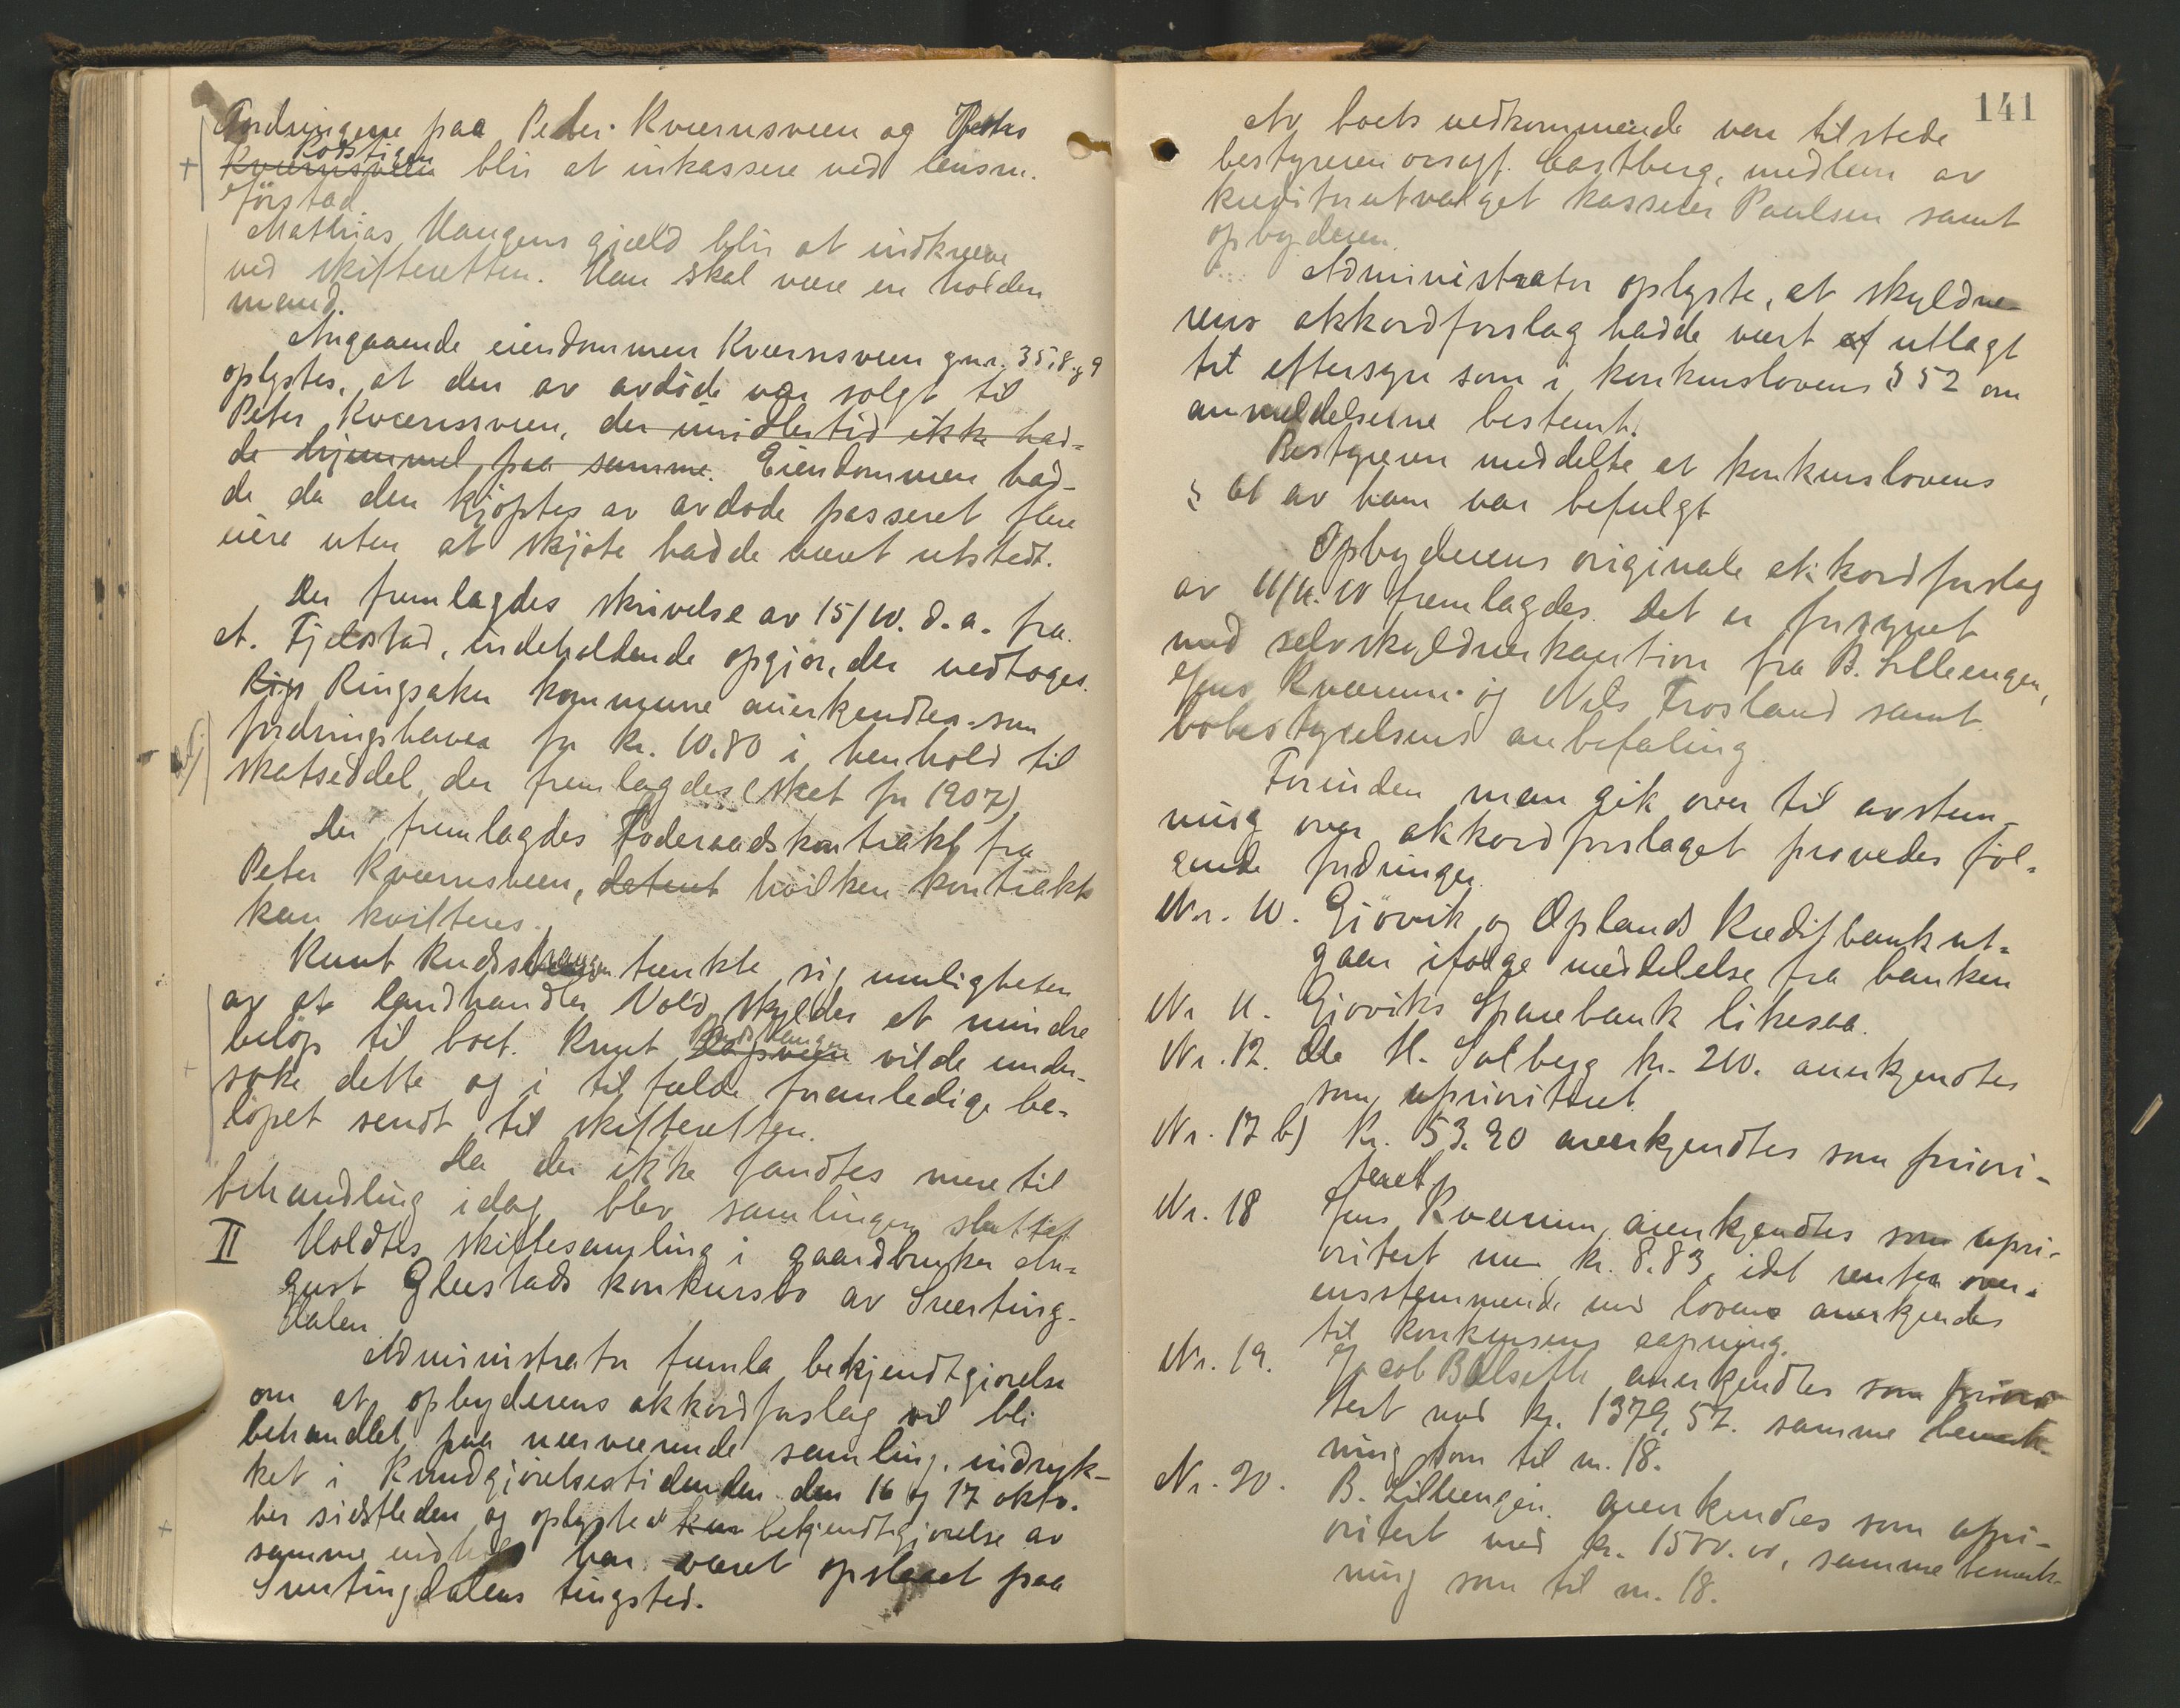 Fordringerne paa Peder Kvernsveen og Petra
Rodstigen
Kvernsveen blir at inkassere ved lensm.
Jörstad.
Mathias Haugens gjæld blir at indkræve
ved skifteretten. Han skal være en holden
mand.
Angaaende eiendommen Kvernsveen gnr. 35, 8 og 9
oplystes, at den av avdöde var solgt til
Peter Kvernssveen, der imidlertid ikke had-
de hjemmel paa samme. Eiendommen had-
de da den kjöptes av avdöde passeret flere
eiere uten at skjöte hadde været utstedt.
Der fremlagdes skrivelse av 15/10. d.a. fra
A. Fjeldstad, indeholdende opgjör, der vedtoges.
Ringsaker kommune anerkjendtes som
fordringshaver for kr. 10,80 i henhold til
skatseddel, der fremlagdes (skat for 1907)
Der fremlagdes Föderaadskontrakt fra
Peter Kvernsveen, hvilken kontrakt
kan kvitteres.
Knut Rudshaugen tænkte sig muligheten
av at landhandler Vold skylder et mindre
belöp til boet. Knut Rudshaugen vilde under-
söke dette og i tilfælde foranledige be-
löpet sendt til skifteretten.
Da der ikke fandtes mere til
behandling idag blev samlingen sluttet
II Holdtes skiftesamling i gaardbruker Au-
gust Glæstads konkursbo av Snerting-
dalen.
Administrator fremla bekjendtgjörelse
om at opbyderens akkordforslag vil bli
behandlet paa nærværende samling, indryk-
ket i Kundgjörelsestidenden den 16 og 17 okto-
ber sidstleden og oplyste at bekjendtgjörelse av
samme indhold har været opslaaet paa
Snertingdalens tingsted.
141
Av boets vedkommende var tilstede
bestyreren orsagf. Castberg, medlem av
kreditorutvalget kasserer Paulsen samt
opbyderen.
Administrator oplyste, at skyldne-
rens akkordforslag hadde vært utlagt
til eftersyn som i konkurslovens § 52 om
anmeldelserne bestemt.
Bestyreren meddelte at konkurslovens
§ av ham var befulgt
Opbyderens originale akkordforslag
av fremlagdes. Det er forsynet
med selvskyldnerkaution fra B. Lilleengen,
Jens Kværnum og Nils Frösland samt
bobestyrelsens anbefaling
Forinden man gik over til avstem-
ning over akkordforslaget prövedes föl-
gende fordringer
Nr. 10. Gjövik og Oplands Kreditbank ut-
gaar ifölge meddelelse fra banken
Nr 11. Gjöviks Sparebank likesaa.
Nr. 12. Ole H. Solberg kr. 210. anerkjendtes
som uprioritert.
Nr. 17 b) Kr. 53.20 anerkjendtes som priori-
teret.
Nr. 18 Jens Kværnum anerkjendtes som upri-
oritert med kr. 8.83, idet renter over-
ensstemmende med lovens anerkjendes
til konkursens aapning.
Nr. 19. Jacob Bælseth anerkjendtes som
tert med kr. 1379,57. samme bemerk-
ning som til nr. 18.
Nr. 20. B. Lilleengen anerkendes som upri-
oritert med kr. 1500.00, samme bemerk-
ning som til nr. 18.